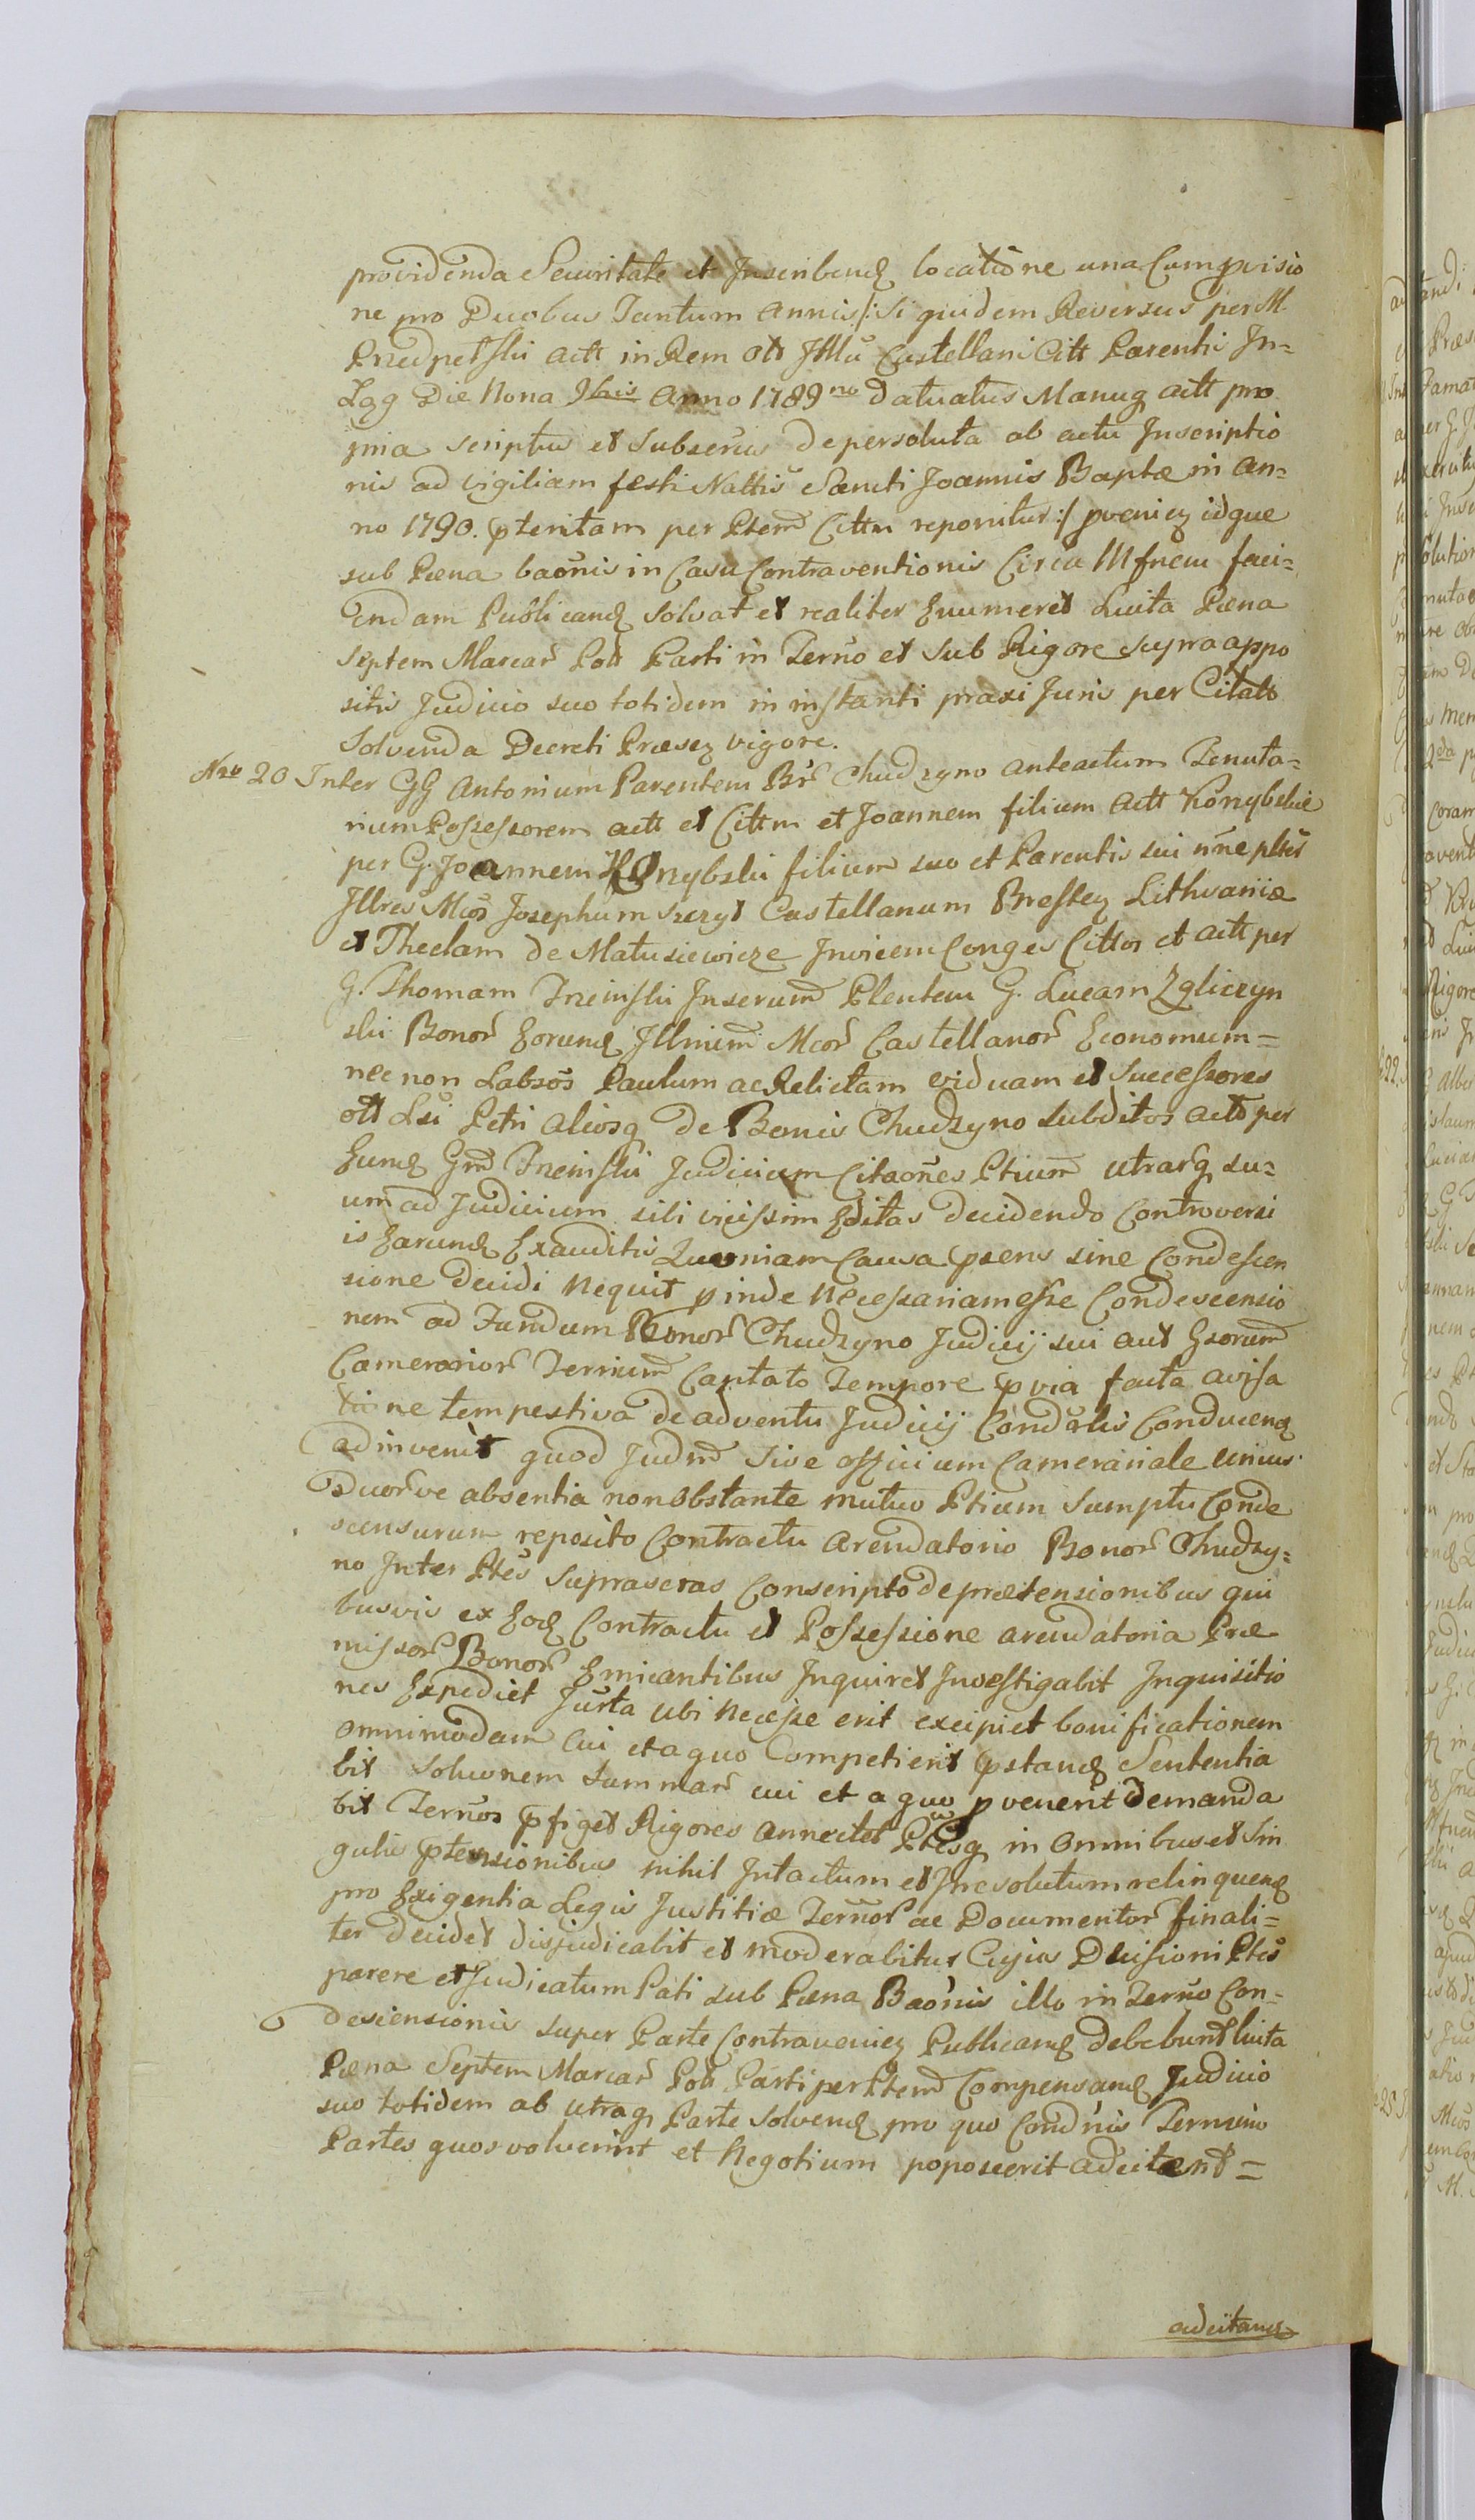 providenda Securitate et Inscribend locatione una Cum pvisio
ne pro Duobus Tantum Annis /: Si quidem Reversus per M.
Przedpełski actt in Rem ott Illu Castellani Citt Parenti In=
Lqq Die Nona Anno 1789no Datuatus Manuq actt pro
pria scriptus et Subscrus depersoluta ab actu Inscriptio
nis ad vigiliam festi Nattis Sancti Joannis Baptæ in An=
no 1790. pteritam per Ptem Cittm reponitur :/ pvenieq idque
sub Pæna baonis in Casu Contraventionis Circa faci=
endam Publicand solvat et realiter Enumeret Luita Pæna
Septem Marcar Pol Parti in Terno et Sub Rigore supra appo
sitis Judicio suo totidem in instanti praxi Juris per Citatt
Solvenda Decreti Præseq vigore.
Nro 20 Inter GG Antonium Parentem Br Chudzyno anteactum Tenuta=
rium Possessorem actt et Cittm et Joannem filium Actt Konybskie
per G. Joannem Konybski filium suo et Parentis sui nne
Illres Mcos Josephum Szczyt Castellanum Bresteq Lithvaniæ
et Theclam de Matusiewicze Invicem Conges Cittos et actt per
G. Thomam Trzeinski Inserum Plentem G. Lucam Zgliczyn
ski Bonor Eorund Illrium Mcor Castellanor Economum=
nec non Labsos Paulum ac Relictam viduam et Successores
ott Lsi Petri aliosq de Bonis Chudzyno Subditos actt per
Eund Gm Trzeinski Judicium Citaones Ptium utrarq su=
um ad Judicium sibi vicissim Editas decidendo Controversi
is Earund Exauditis Quoniam Causa psens sine Condescen
sione decidi Nequit pinde Necessariam esse Condescensio
nem ad Fundum Bonor Chudzyno Judicij sui aut Gsorum
Camerarior Terrium Captato Tempore pvia facta avisa
tione tempestiva de adventu Judicij Condrlis Conducend
adinvenit quod Judm Sive officium Camerariale unius
Duorve absentia non obstante mutuo Ptium Sumptu Conde
scensurum reposito Contractu arendatorio Bonor Chudzy=
no Inter Ptes Suprascras Conscripto de prætensionibus qui
busvis ex Eod Contractu et Possessione arendatoria Præ
missor Bonor Emicantibus Inquiret Investigabit Inquisitio
nes Expediet Jurta ubi Necesse erit excipiet bonificationem
omnimodam Cui et a quo Competierit pstand Sententia
bit Soluonem Summar cui et a quo pvenerit Demanda
bit Ternos pfiget Rigores annectet Ptesq in omnibus et Sin
gulis ptensionibus nihil Intactum et Irresolutum relinquend
pro Exigentia Legis Justitiæ Ternor ac Documentor finali=
ter decidet disjudicabit et moderabitur Cujus Decisioni Ptes
parere et Judicatum Pati sub Pæna Baonis illo in Terno Con=
descensionis super Parte Contravenieq Publicand debebunt luita
Pæna Septem Marcar Pol Parti per Ptem Compensand Judicio
suo totidem ab utraq Parte Solvend pro quo Condnis Termino
Partes quos voluerint et Negotium poposcerit adcitent=
adcitand